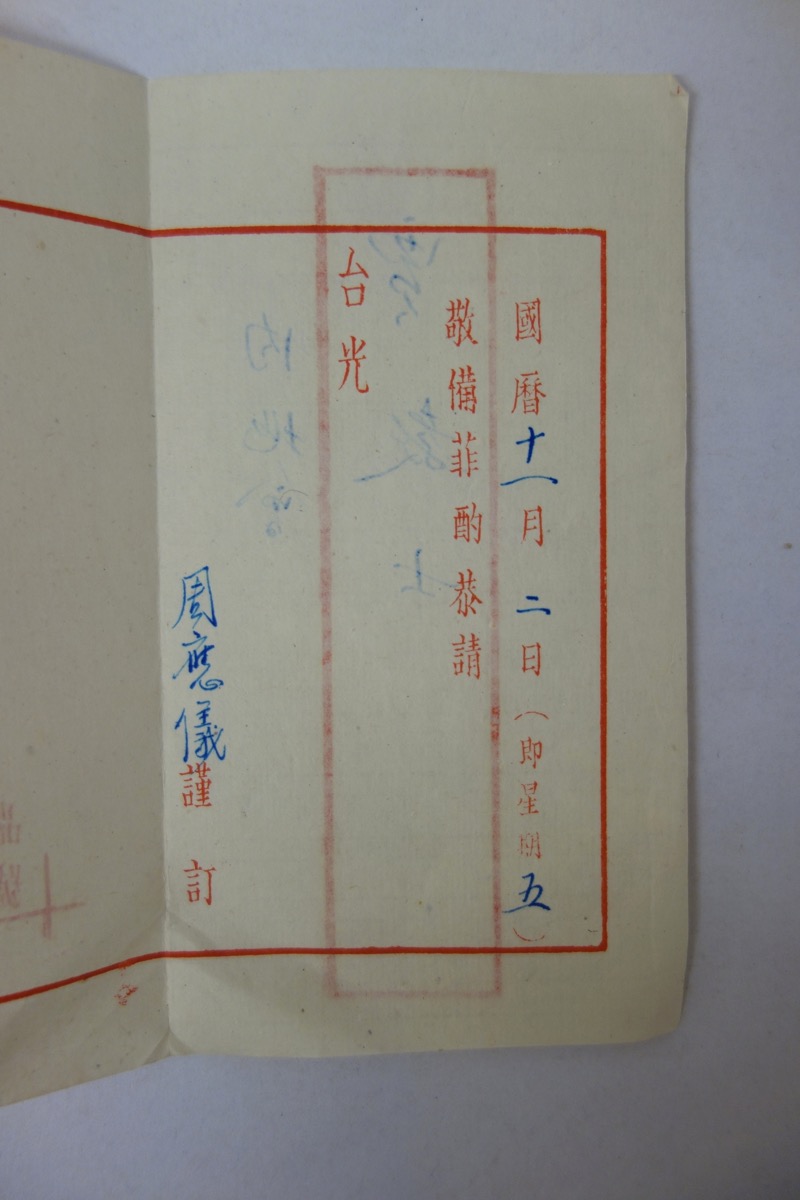 國曆十一月二日（即星期五）
敬備菲酌恭請
台光
周應儀謹訂
內地會